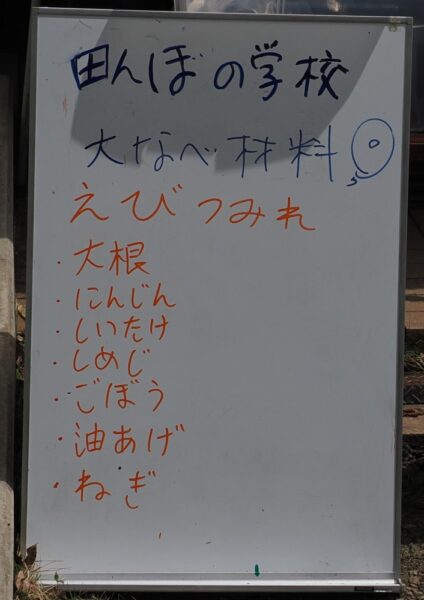 田んぼの学校
大なべ材料
えびつみれ
・大根
・にんじん
・しいたけ
・しめじ
・ごぼう
・油あげ
・ねぎ